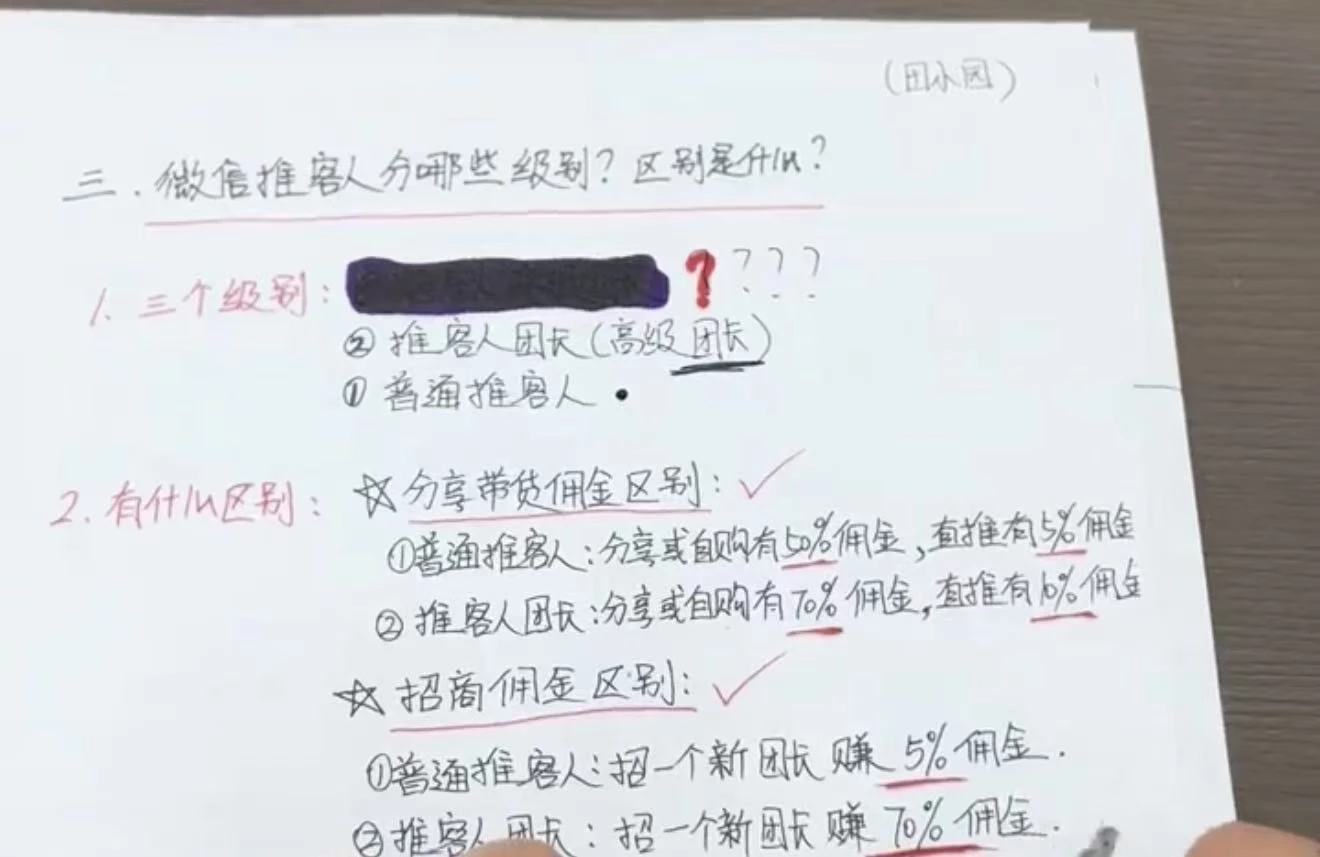 (团小园)
三.微信推客人分哪些级别?区别是什么?
1.三个级别: ? ? ? ?
② 推客人团长(高级团长)
① 普通推客人 ·
2.有什么区别: ☆分享带货佣金区别: ✓
①普通推客人:分享或自购有50%佣金,直推有5%佣金
② 推客人团长:分享或自购有70%佣金,直推有10%佣金
☆招商佣金区别: ✓
①普通推客人:招一个新团长赚 5%佣金.
②推客人团长:招一个新团长赚 70%佣金.